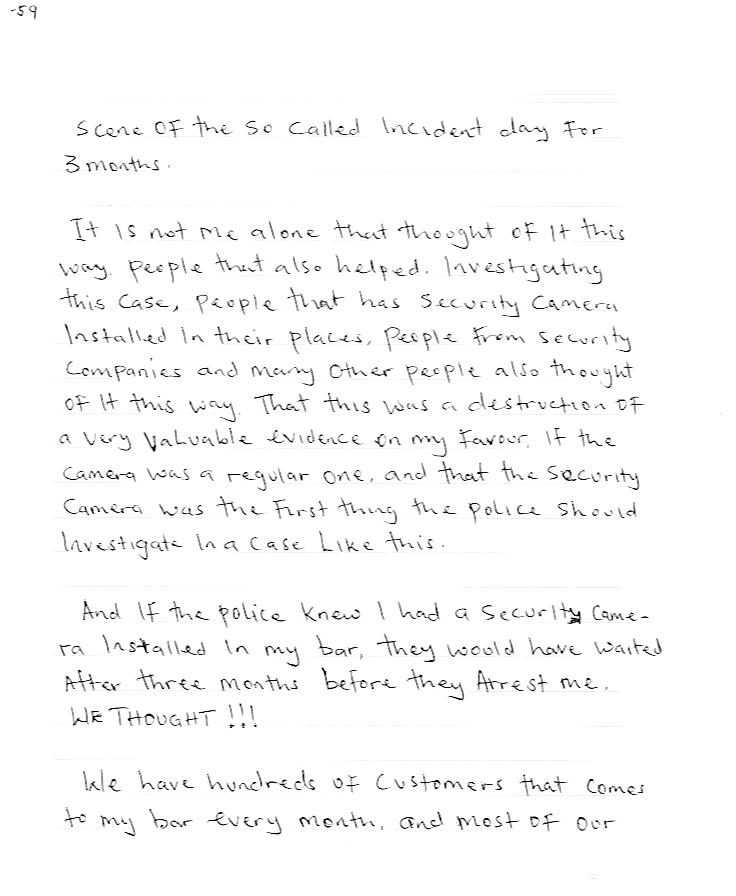 -59
Scene OF the So Called Incident day For
3 months.
It Is not me alone that thought of It this
way. People that also helped. Investigating
this Case, People that has Security Camera
Installed In their places, People From Security
Companies and many Other people also thought
OF It this way. That this was a destruction OF
a very Valuable evidence on my Favour. If the
Camera was a regular one, and that the Security
Camera was the First thing the police should
Investigate In a Case Like this.
And IF the police Knew I had a Security Came-
ra Installed In my bar, they would have waited
After three months before they Arrest me.
WE THOUGHT !!!
We have hundreds of Customers that Comes
to my bar every month, and most OF our